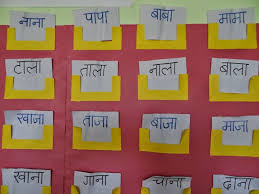 नाना पापा बाबा मामा
टाला ताला नाला बाला
खाजा ताजा बाजा माजा
खाना गाना चाना दाना